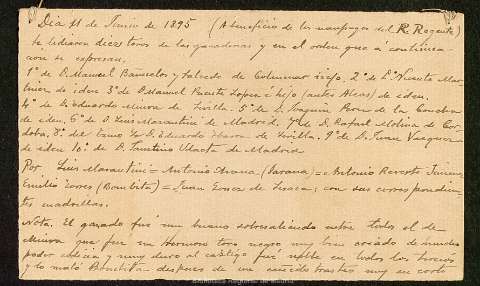 Dia 11 de Junio de 1895 (A beneficio de los naufragos del R. Regente)
Se lidiaron diez toros de las ganaderias y en el orden que a continua-
cion se expresan.
1º de D. Manuel Bañuelos y Salcedo de Colmenar viejo. 2º de Dª Vicenta Mar-
tinez de idem 3º de D. Manuel Puente Lopez é hijo (antes Aleas) de idem.
4º de D. Eduardo Miura de Sevilla. 5º de D. Joaquin Perez de la Concha
de idem. 6º de D. Luis Mazzantini de Madrid. 7º de D. Rafael Molina de Cor-
doba. 8º del Exmo Sr. D. Eduardo Ibarra de Sevilla. 9º de D. Juan Vazquez
de idem 10º de D. Faustino Udaeta de Madrid
Por Luis Mazzantini = Antonio Arana (Jarana) = Antonio Reverte Jimenez
Emilio Torres (Bombita) = Juan de Lesaca; con sus correspondien-
tes cuadrillas.
Nota. El ganado fué muy bueno sobresaliendo entre todos el de
Miura que fue un hermoso toro negro muy bien criado de mucho
poder codicia y muy duro al castigo fue noble en todos los tercios
y lo mató Bombita despues de un ceñido trasteo muy en corto
Biblioteca Regional de Madrid